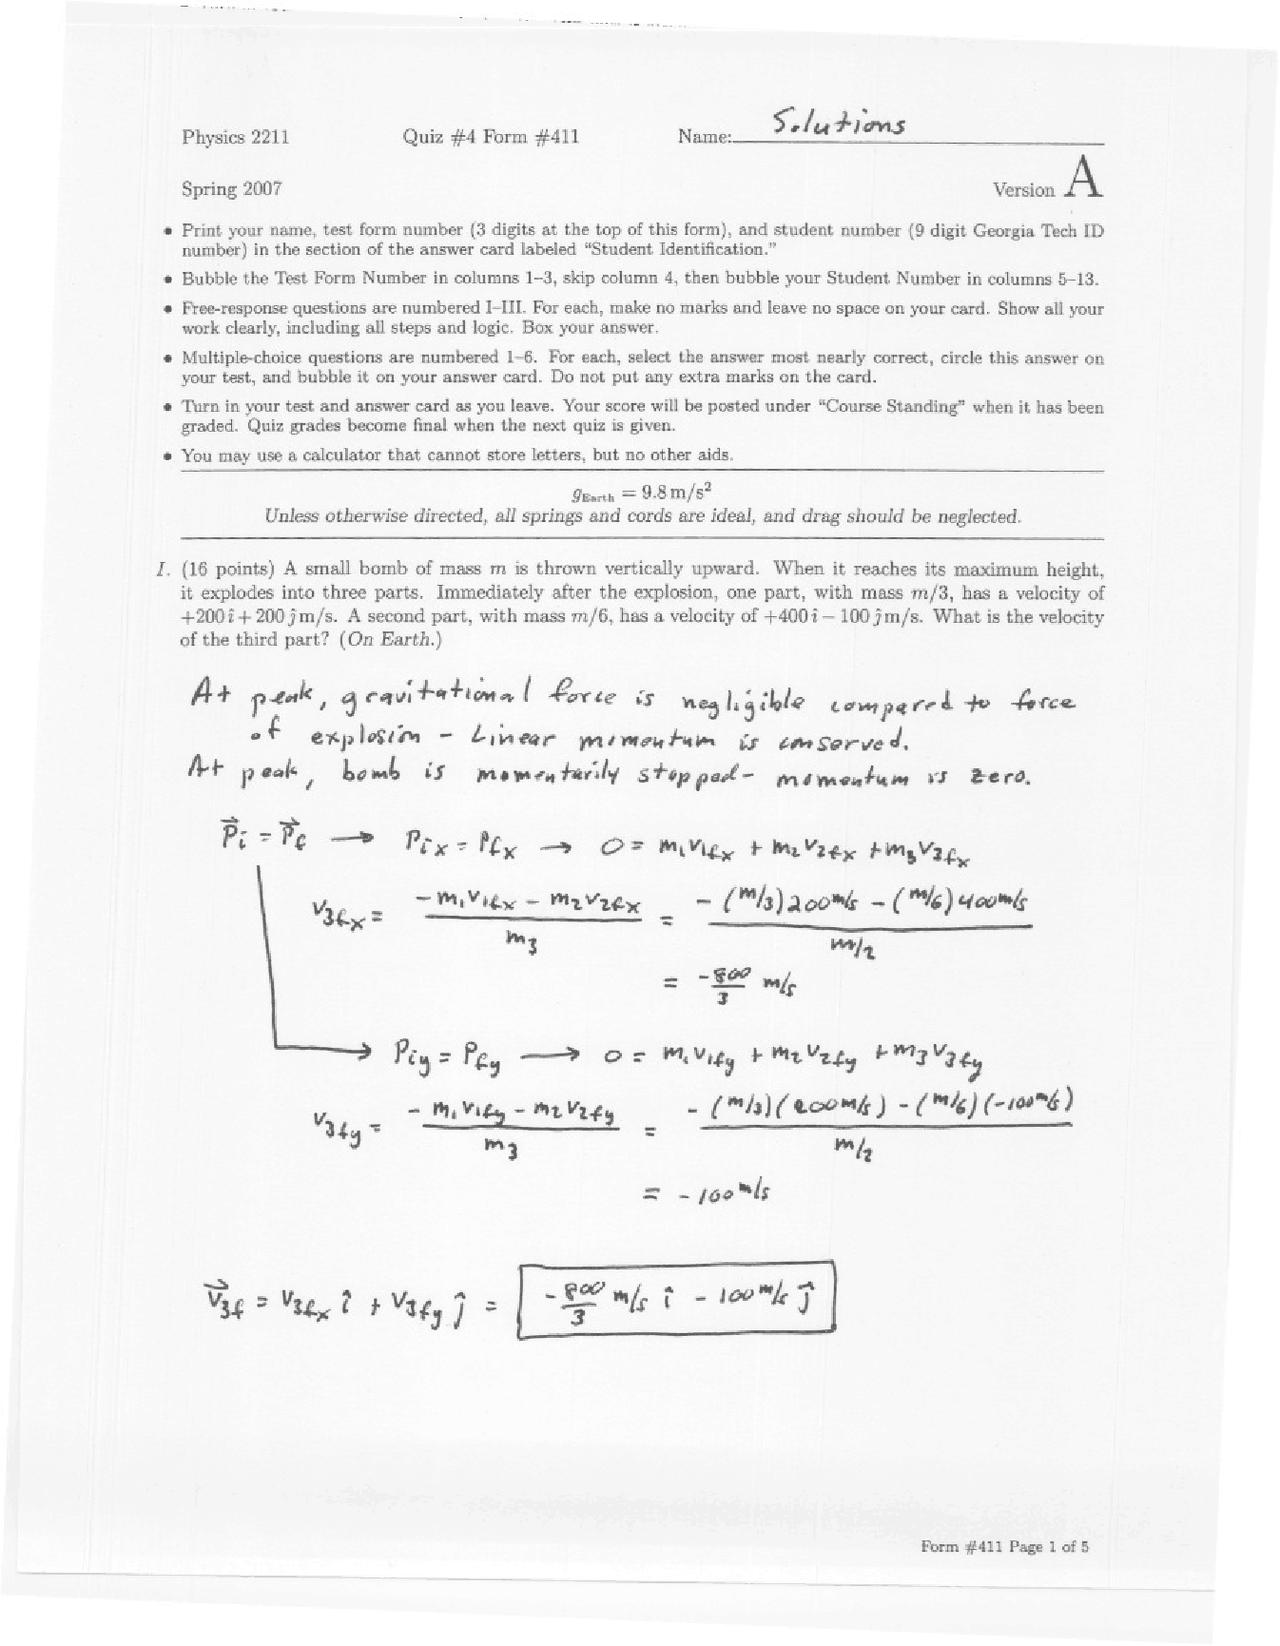 Physics 2211 Quiz #4 Form #411 Name: Solutions
Spring 2007 Version A
• Print your name, test form number (3 digits at the top of this form), and student number (9 digit Georgia Tech ID
number) in the section of the answer card labeled “Student Identification.”
• Bubble the Test Form Number in columns 1–3, skip column 4, then bubble your Student Number in columns 5–13.
• Free-response questions are numbered I–III. For each, make no marks and leave no space on your card. Show all your
work clearly, including all steps and logic. Box your answer.
• Multiple-choice questions are numbered 1–6. For each, select the answer most nearly correct, circle this answer on
your test, and bubble it on your answer card. Do not put any extra marks on the card.
• Turn in your test and answer card as you leave. Your score will be posted under “Course Standing” when it has been
graded. Quiz grades become final when the next quiz is given.
• You may use a calculator that cannot store letters, but no other aids.
g_Earth = 9.8 m/s²
Unless otherwise directed, all springs and cords are ideal, and drag should be neglected.
I. (16 points) A small bomb of mass m is thrown vertically upward. When it reaches its maximum height,
it explodes into three parts. Immediately after the explosion, one part, with mass m/3, has a velocity of
+200 î + 200 ĵ m/s. A second part, with mass m/6, has a velocity of +400 î − 100 ĵ m/s. What is the velocity
of the third part? (On Earth.)
At peak, gravitational force is negligible compared to force
of explosion - Linear momentum is conserved.
At peak, bomb is momentarily stopped - momentum is zero.
P⃗i = P⃗f → Pix = Pfx → 0 = m₁v1fx + m₂v2fx + m₃v3fx
v3fx = (-m₁v1fx - m₂v2fx)/m₃ = (-(m/3)200 m/s - (m/6)400 m/s)/(m/2)
= -800/3 m/s
→ Piy = Pfy → 0 = m₁v1fy + m₂v2fy + m₃v3fy
v3fy = (-m₁v1fy - m₂v2fy)/m₃ = (-(m/3)(200 m/s) - (m/6)(-100 m/s))/(m/2)
= -100 m/s
v⃗3f = v3fx î + v3fy ĵ = -800/3 m/s î - 100 m/s ĵ
Form #411 Page 1 of 5